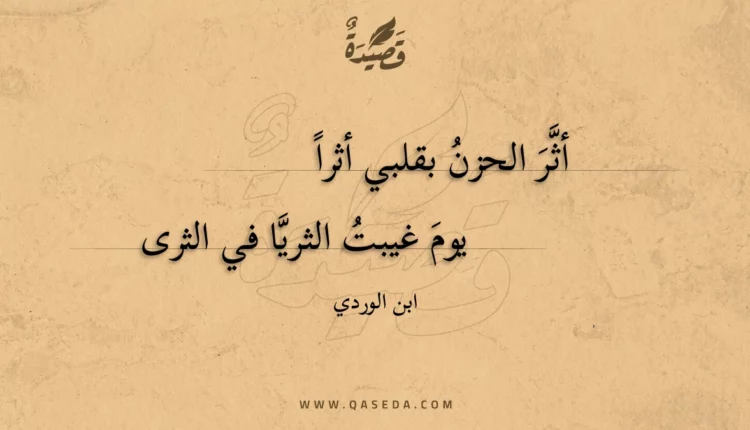 قَصِيْدَةٌ
أثَّرَ الحزنُ بقلبي أثراً
يومَ غيبتُ الثريَّا في الثرى
ابن الوردي
WWW.QASEDA.COM